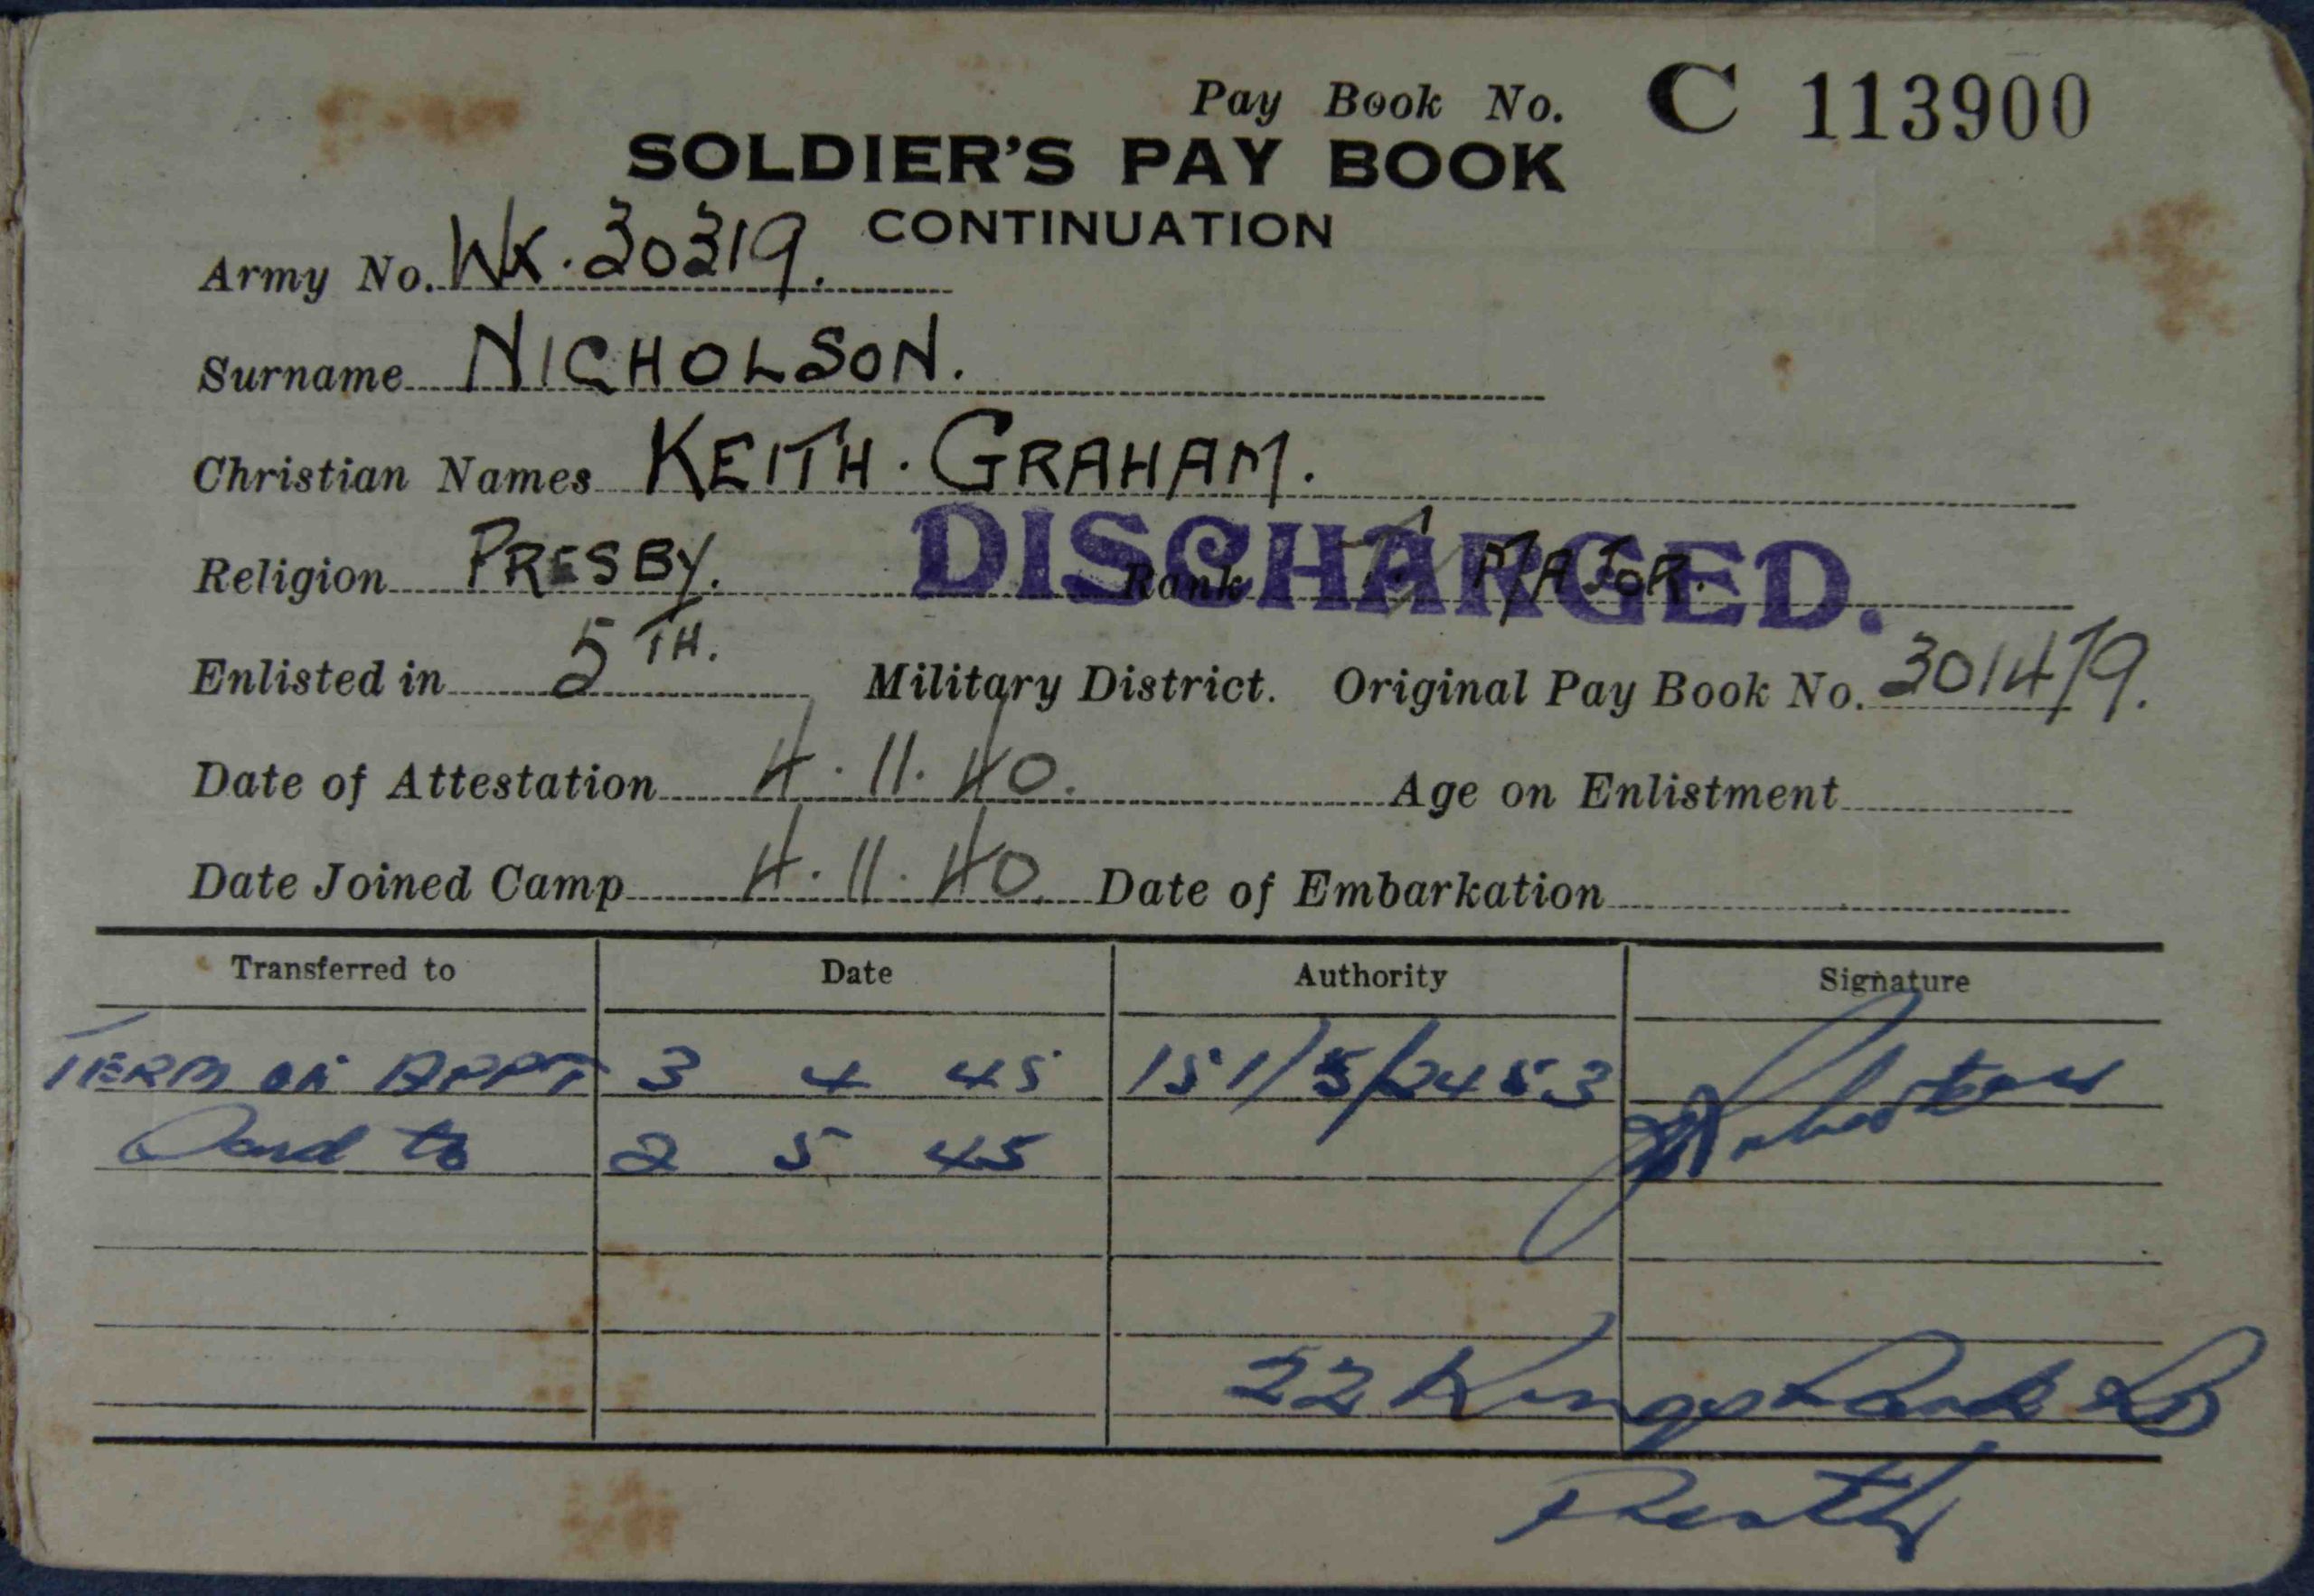 Pay Book No. C 113900
SOLDIER'S PAY BOOK
CONTINUATION
Army No. WX.30319.
Surname NICHOLSON.
Christian Names KEITH. GRAHAM.
DISCHARGED.
Religion PRESBY. Rank MAJOR.
Enlisted in 5TH. Military District. Original Pay Book No. 301479.
Date of Attestation 4.11.40. Age on Enlistment
Date Joined Camp 4.11.40 Date of Embarkation
Transferred to Date Authority Signature
TERM OF APPT 3 4 45 151/5/2453
Paid to 2 5 45
22 Kings Park Rd
Perth